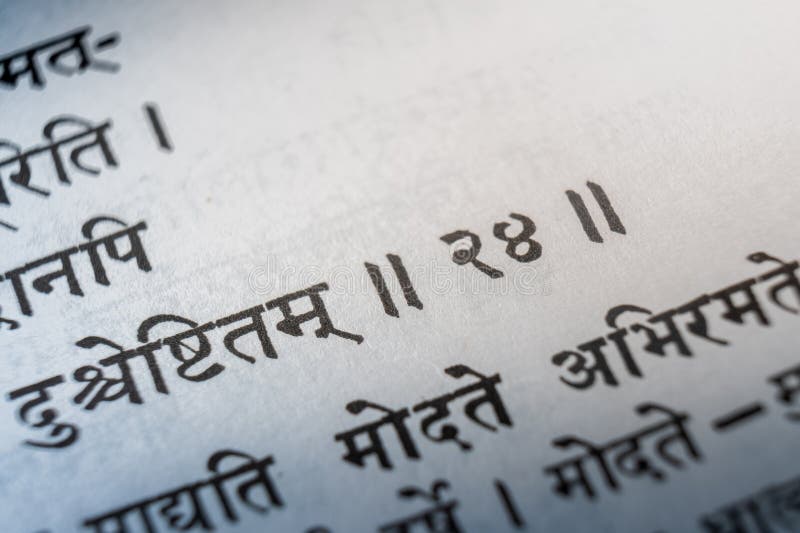 मत्-
रिति ।
ानपि
दुश्चेष्टितम् ॥ २४ ॥
माद्यति मोदते अभिरमते
। मोदते – मु
dreamstime